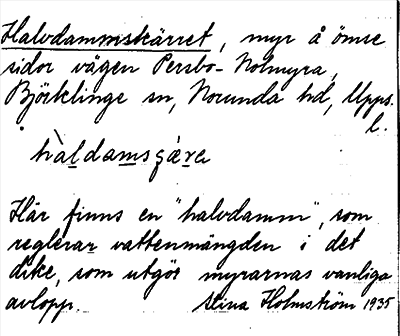 Halvdammskärret, myr å ömse
sidor vägen Persbo-Nolmyra,
Björklinge sn, Norunda hd, Upps.
l.
hàldamsçæ̀rə
Här finns en "halvdamm", som
reglerar vattenmängden i det
dike, som utgör myrarnas vanliga
avlopp. Stina Holmström 1935